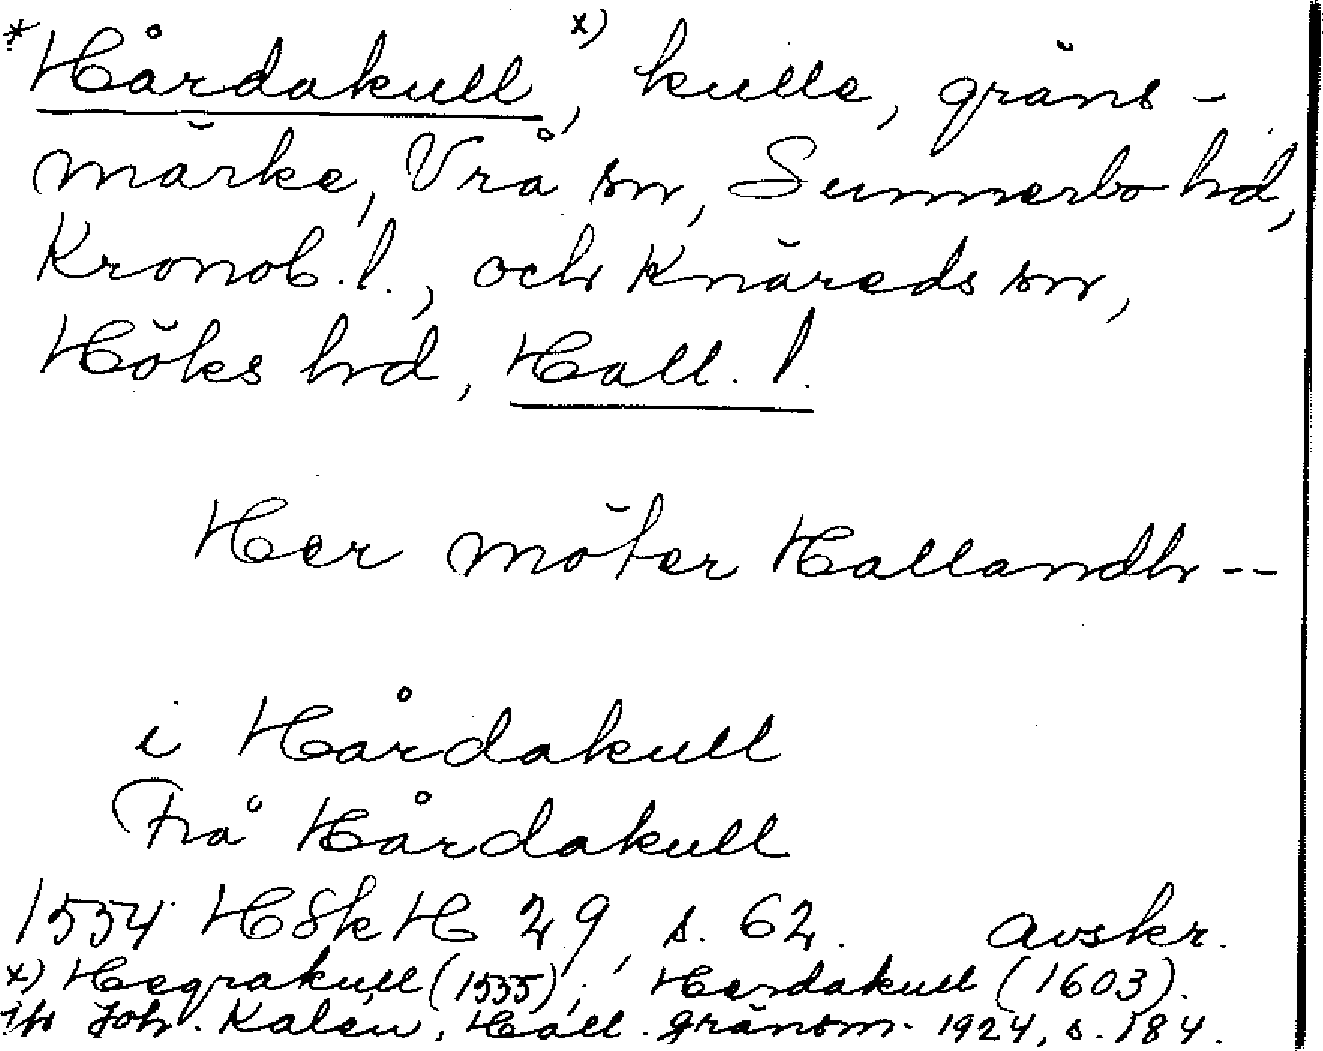 *Hårdakull x), kulle, gräns-
märke, Vrå sn, Sunnerbo hd,
Kronob. l., och Knäreds sn,
Höks hd, Hall. l.
Her möter Hallandh --
i Hårdakull
Frå Hårdakull
1554 HSkH 29, s. 62. avskr.
x) Hegrakull (1535); Herdakull (1603).
Joh. Kalén, Hall. gränsm. 1924, s. 184.